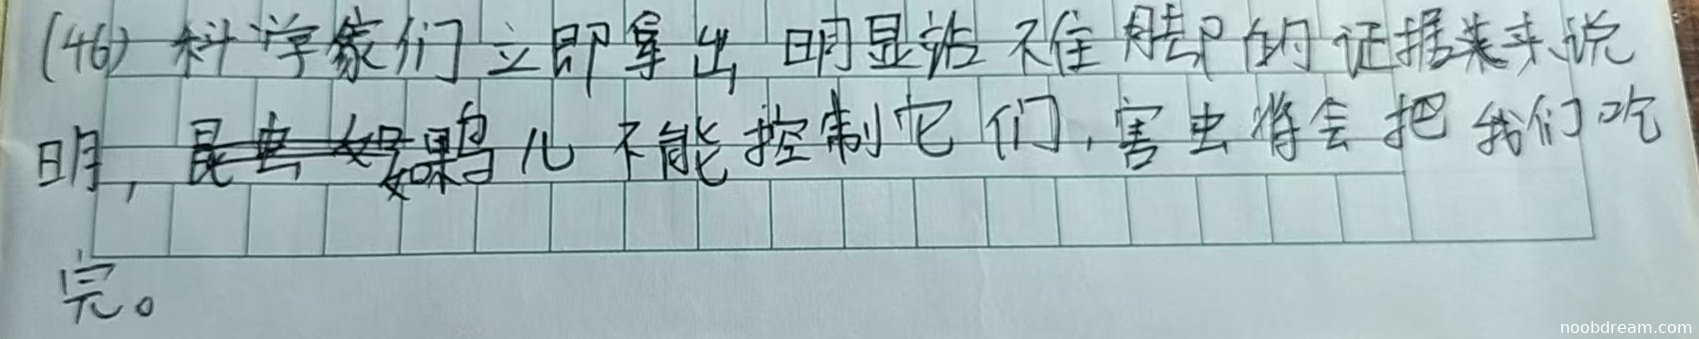 (46) 科学家们立即拿出明显站不住脚的证据来来说
明，昆虫如如果鸟儿不能控制它们，害虫将会把我们吃
完。
noobdream.com